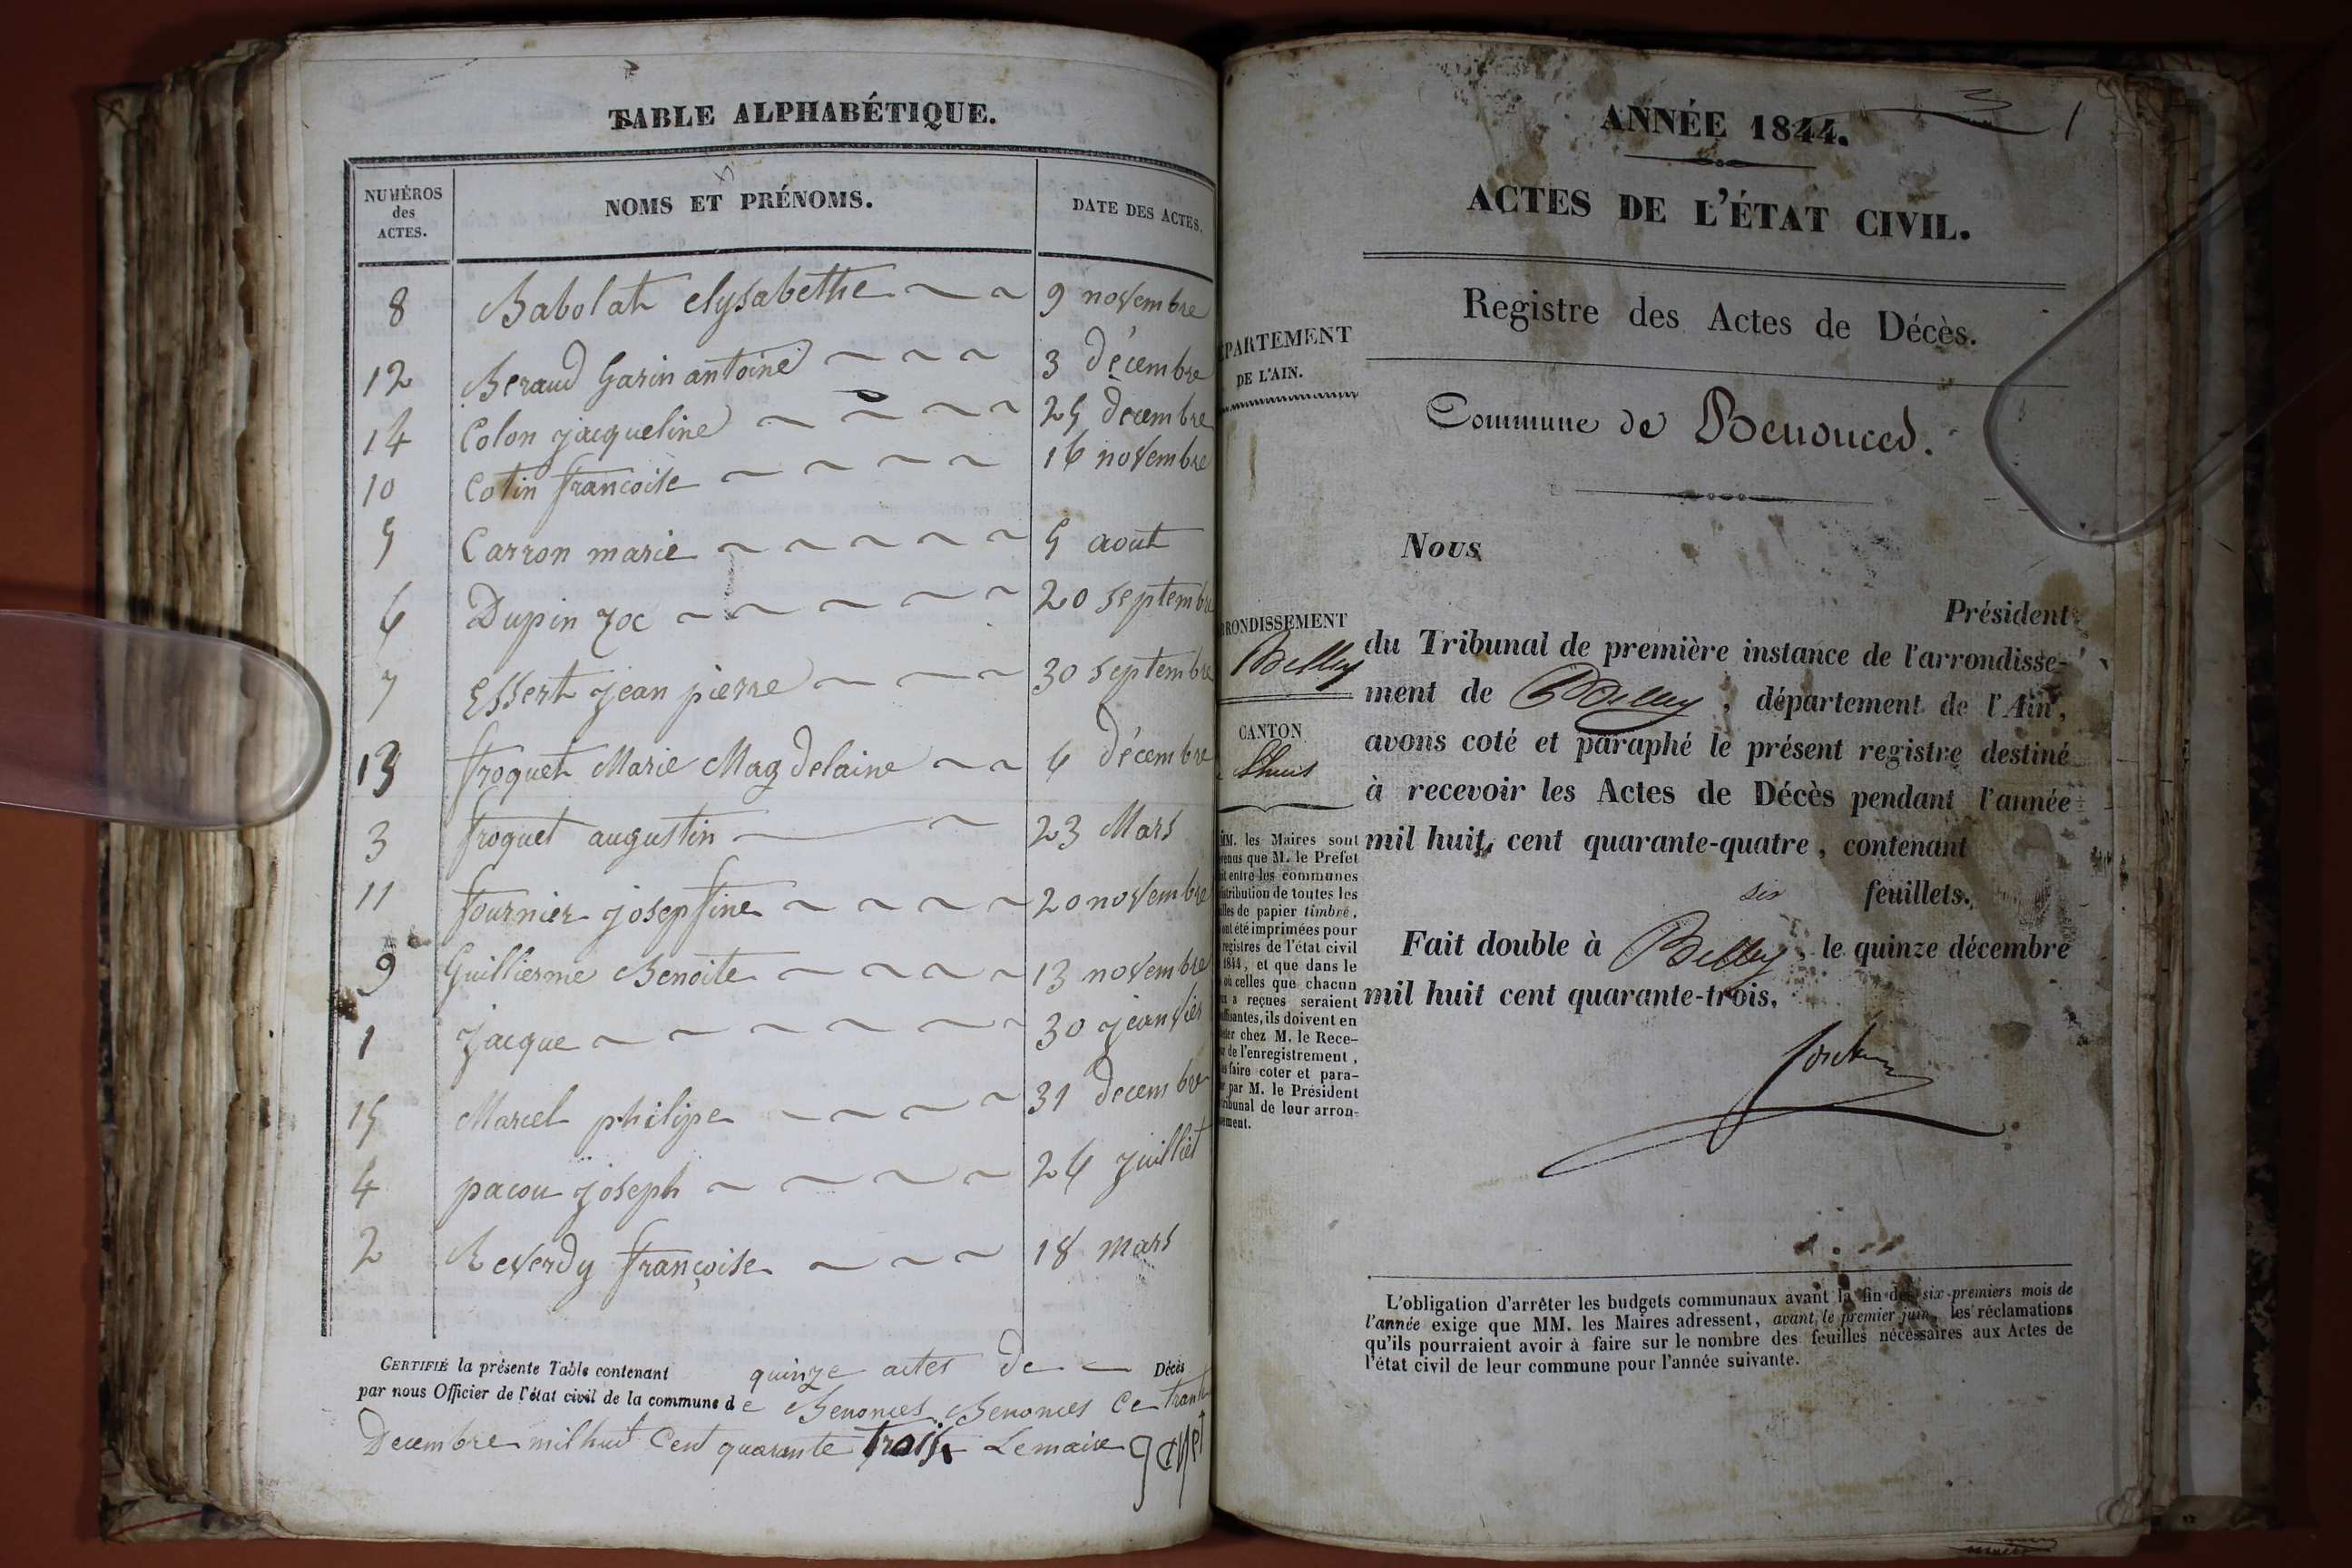 TABLE ALPHABÉTIQUE.
NUMÉROS des ACTES. NOMS ET PRÉNOMS. DATE DES ACTES.
8 Babolat elysabethe 9 novembre
12 Beraud Garin antoine 3 décembre
14 Colon jacqueline 25 decembre
10 Cotin francoise 16 novembre
5 Carron marie 5 aout
6 Dupin roc 20 septembre
7 Essert jean pierre 30 septembre
13 froquet Marie Magdelaine 6 décembre
3 froquet augustin 23 Mars
11 fournier josepfine 20 novembre
9 Guillierme Benoite 13 novembre
1 Jacque 30 jeanvier
15 Marcel philipe 31 decembre
4 pacou joseph 26 juilliet
2 Reverdy françoise 18 mars
CERTIFIÉ la présente Table contenant quinze actes de Décès
par nous Officier de l'état civil de la commune de Benonces Benonces Ce trante
Decembre mil huit Cent quarante trois Le maire
ANNÉE 1844.
1
ACTES DE L'ÉTAT CIVIL.
Registre des Actes de Décès.
PARTEMENT
DE L'AIN.
Commune de Benonces.
Nous
Président
RONDISSEMENT
Belley
CANTON
Lhuis
du Tribunal de première instance de l'arrondisse-
ment de Belley, département de l'Ain,
avons coté et paraphé le présent registre destiné
à recevoir les Actes de Décès pendant l'année
mil huit cent quarante-quatre, contenant
six feuillets.
Fait double à Belley, le quinze décembre
mil huit cent quarante-trois.
MM. les Maires sont
venus que M. le Prefet
it entre les communes
istribution de toutes les
lles de papier timbré,
ont été imprimées pour
registres de l'état civil
1844, et que dans le
où celles que chacun
a reçues seraient
ffisantes, ils doivent en
ter chez M. le Rece-
r de l'enregistrement,
s faire coter et para-
r par M. le Président
ribunal de leur arron-
sement.
L'obligation d'arrêter les budgets communaux avant la fin des six premiers mois de
l'année exige que MM. les Maires adressent, avant le premier juin, les réclamations
qu'ils pourraient avoir à faire sur le nombre des feuilles nécessaires aux Actes de
l'état civil de leur commune pour l'année suivante.